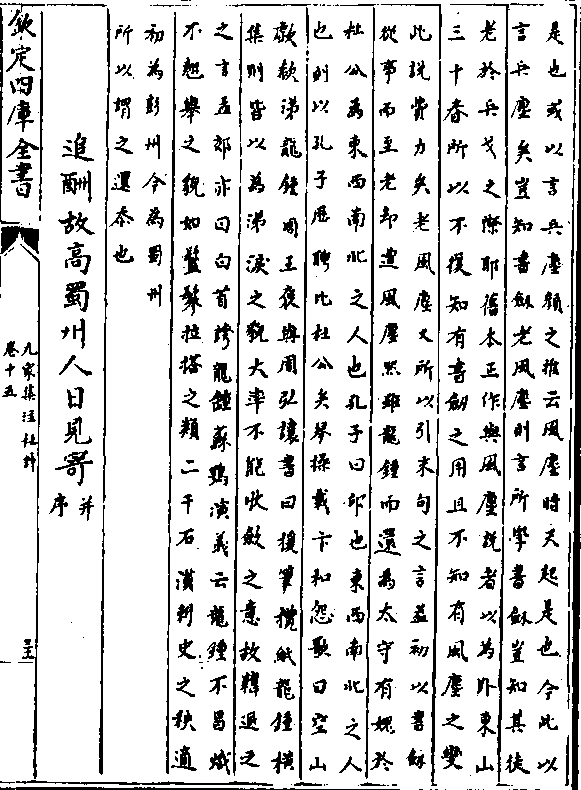 是也或以言兵塵顏之推云風塵時天起是也今此以
言兵塵矣豈知書劍老風塵則言所學書劍豈知其徒
老於兵戈之際耶舊本正作與風塵說者以為卧東山
三十春所以不復知有書劍之用且不知有風塵之變
此說費力矣老風塵又所以引末句之言蓋初以書劍
從事而至老却遭風塵然雖龍鍾而還為太守有媿於
杜公為東西南北之人也孔子曰邱也東西南北之人
也則以孔子歷聘比杜公矣琴操載卞和怨歌曰空山
歔欷涕龍鍾周王褒與周弘讓書曰援筆攬紙龍鍾橫
集則皆以為涕淚之貌大率不能收斂之意故釋退之
之言孟郊亦曰白首誇龍鍾蘇鶚演義云龍鍾不昌熾
不翹舉之貌如䰐鬖拉搭之類二千石漢刺史之秩適
初為彭州今為蜀州
所以謂之還忝也
追酬故高蜀州人日見寄并序
欽定四庫全書
九家集注杜詩
卷十五